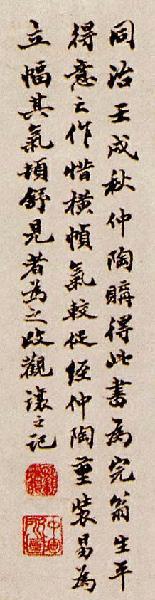 同治壬戌秋仲陶購得此書為完翁生平
得意之作惜橫幀氣較促經仲陶重裝易為
立幅其氣頓舒見者為之改觀讓之記